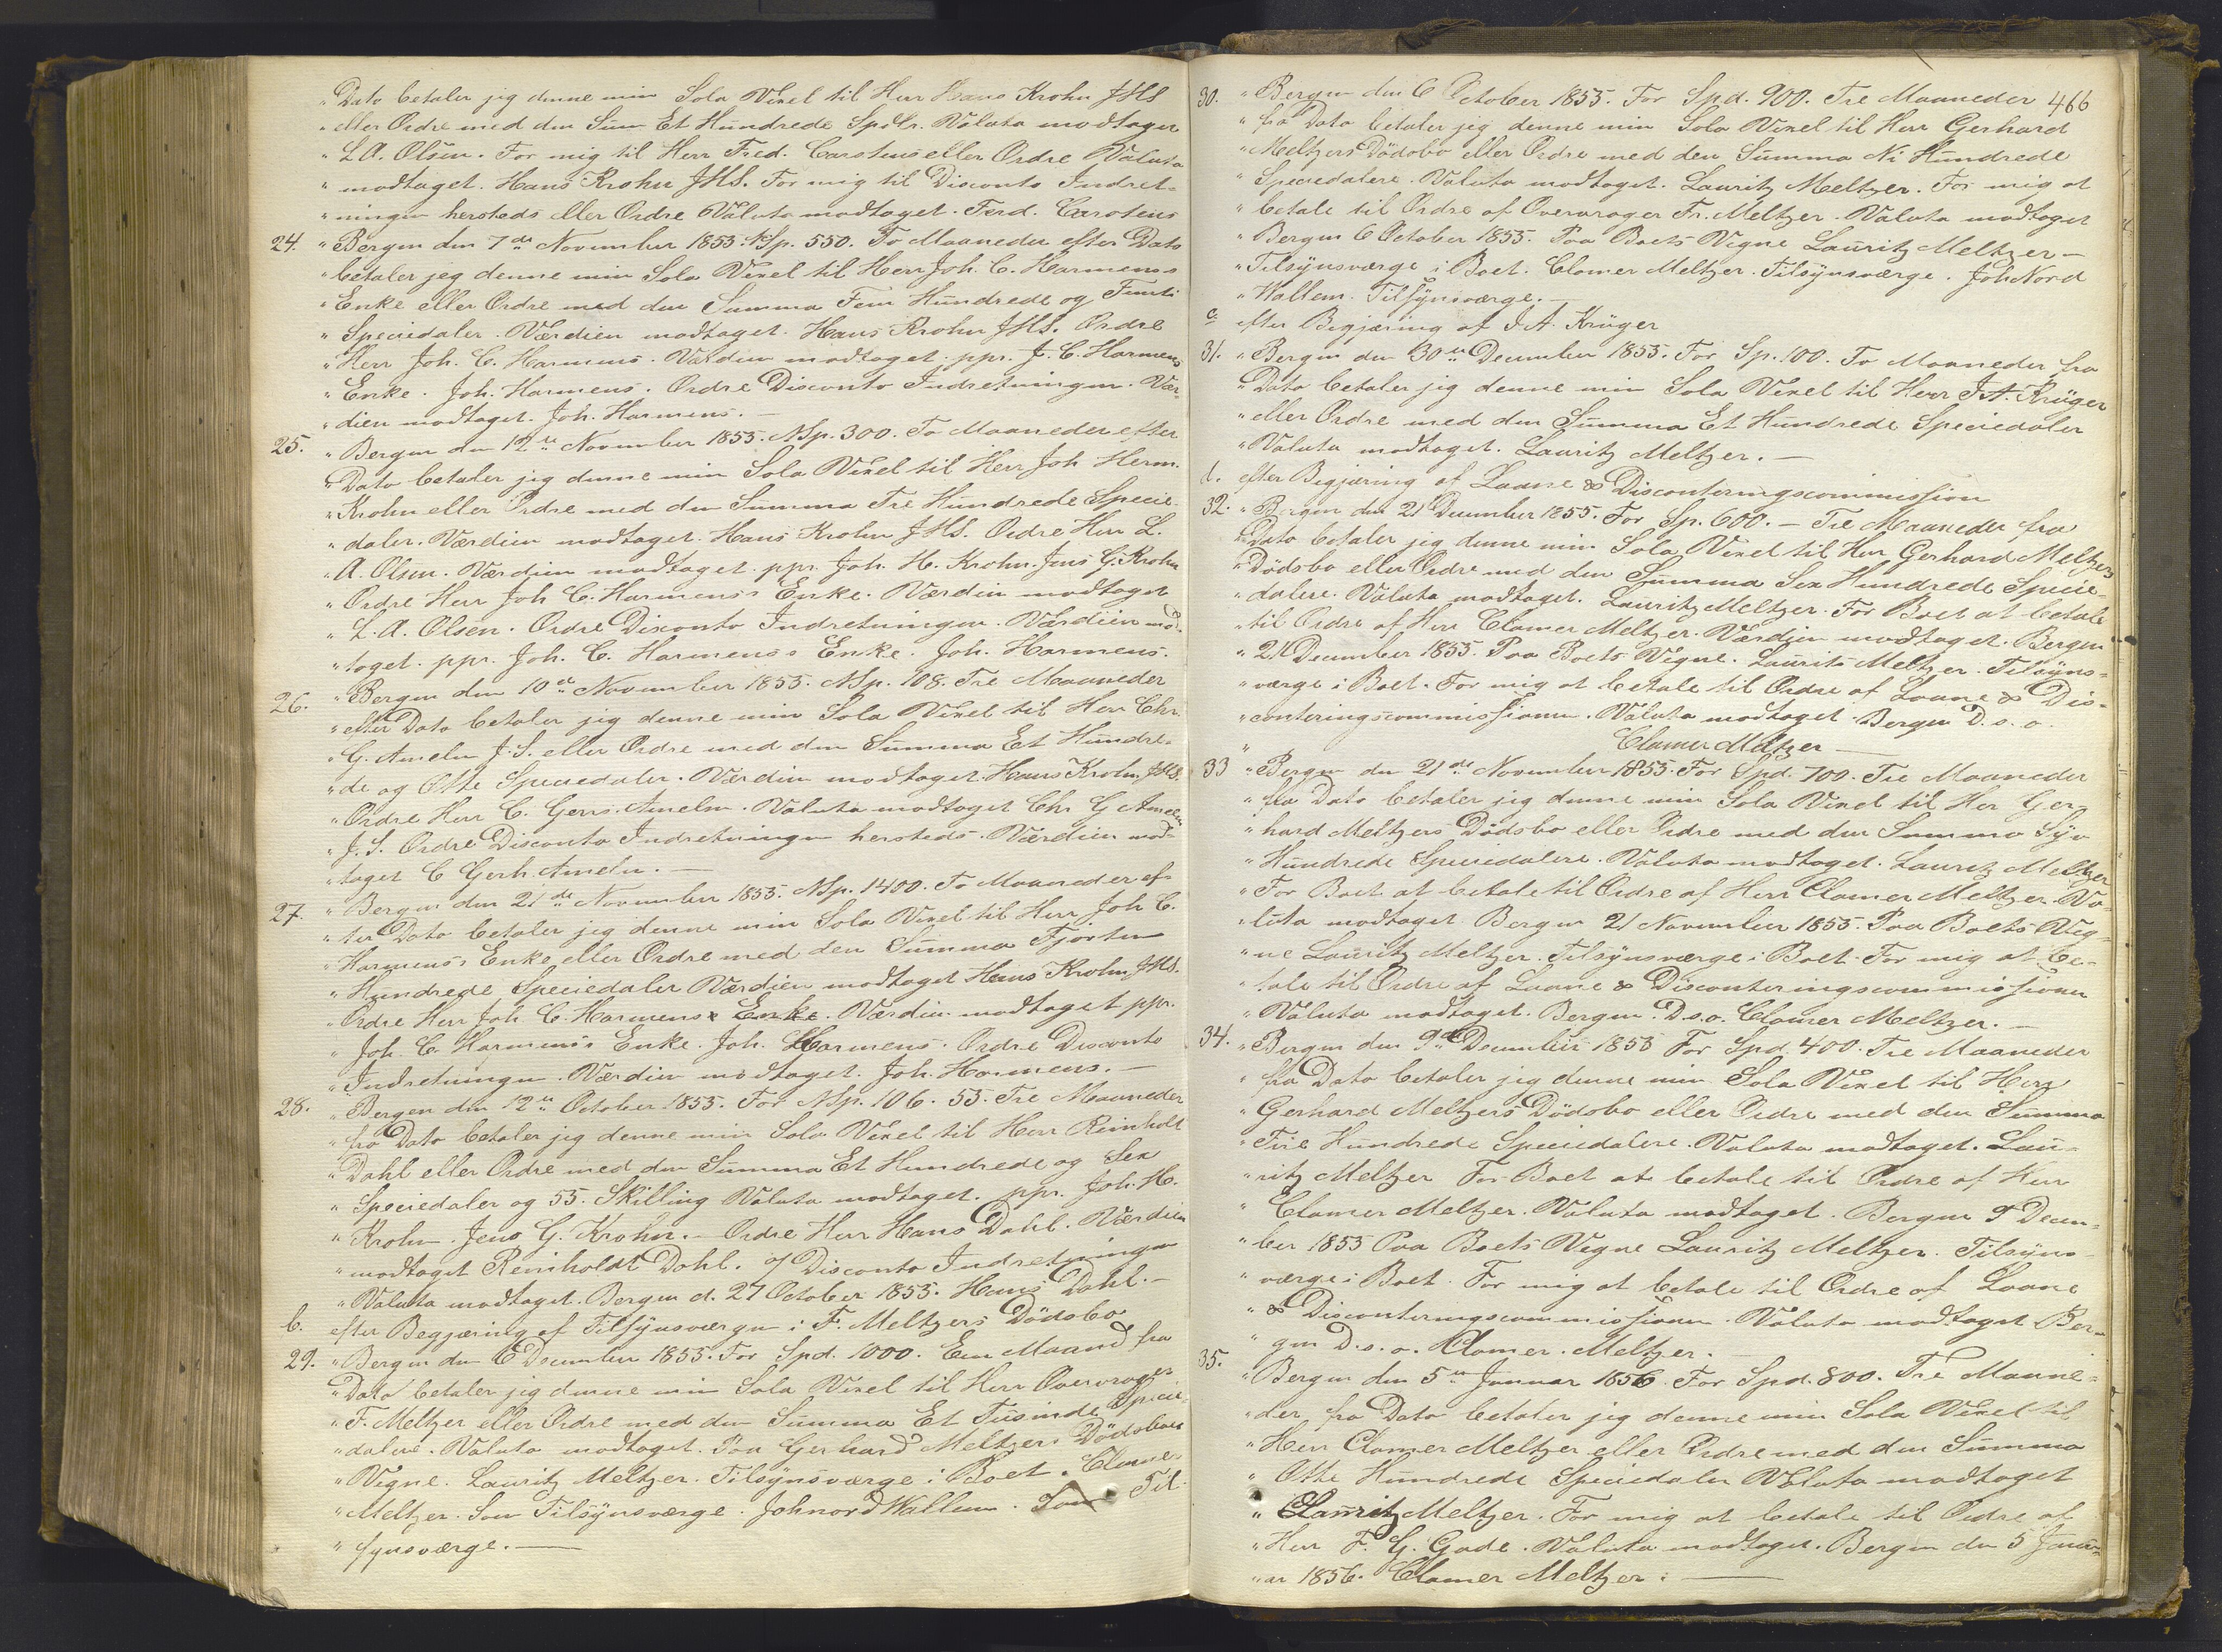 "Dato betaler jeg denne min Sola Vexel til Herr Hans Krohn JHS
"eller Ordre med den Sum Et Hundrede Spdlr. Valuta modtaget
"L A. Olsen. For mig til Herr Fred. Carstens eller Ordre Valuta
"modtaget. Hans Krohn JHS. For mig til Disconto Indret-
"ningen hersteds eller Ordre Valuta modtaget. Ferd. Carstens
24. "Bergen den 7de November 1855. NSp. 550. To Maaneder efter Dato
"betaler jeg denne min Sola Vexel til Herr Joh. C. Harmens's
"Enke eller Ordre med den Summa Fem Hundrede og Femti
"Speciedaler. Værdien modtaget. Hans Krohn JHS. Ordre
"Herr Joh. C. Harmens. Værdien modtaget. ppr. J. C. Harmens
"Enke. Joh. Harmens. Ordre Disconto Indretningen. Vær-
"dien modtaget. Joh. Harmens. —
25. "Bergen den 12te November 1855. NSp. 300. To Maaneder efter
"Dato betaler jeg denne min Sola Vexel til Herr Joh Herm.
"Krohn eller Ordre med den Summa Tre Hundrede Specie-
"daler. Værdien modtaget. Hans Krohn JHS. Ordre Herr L.
"A. Olsen. Værdien modtaget. ppr. Joh. H. Krohn. Jens G. Krohn
"Ordre Herr Joh C. Harmens's Enke. Værdien modtaget
"L. A. Olsen. Ordre Disconto Indretningen. Værdien mod-
"taget. ppr. Joh. C. Harmens's Enke. Joh. Harmens.
26. "Bergen den 10de November 1855. NSp. 108. Tre Maaneder
"efter Dato betaler jeg denne min Sola Vexel til Herr Chr.
"G. Ameln J. S. eller Ordre med den Summa Et Hundre-
"de og Otte Speciedaler. Værdien modtaget Hans Krohn JHS.
"Ordre Herr C. Gerrs. Ameln. Valuta modtaget Chr G Ameln
"J. S. Ordre Disconto Indretningen hersteds. Værdien mod-
"taget C Gerh. Ameln. —
27. "Bergen den 21de November 1855. NSp. 1400. To Maaneder ef-
"ter Dato betaler jeg denne min Sola Vexel til Herr Joh C.
"Harmens's Enke eller Ordre med den Summa Fjorten
"Hundrede Speciedaler Værdien modtaget Hans Krohn JHS.
"Ordre Herr Joh. C. Harmens Enke. Værdien modtaget ppr.
"Joh. C. Harmens's Enke. Joh. Harmens. Ordre Disconto
"Indretningen. Værdien modtaget. Joh. Harmens. —
28. "Bergen den 12te October 1855. For NSp. 106. 55. Tre Maaneder
"fra Dato betaler jeg denne min Sola Vexel til Herr Reinholdt
"Dahl eller Ordre med den Summa Et Hundrede og Sex
"Speciedaler og 55. Skilling Valuta modtaget. ppr. Joh. H.
"Krohn. Jens G. Krohn. — Ordre Herr Hans Dahl. Værdien
"modtaget Reinholdt Dahl. of Disconto Indretningen
"Valuta modtaget. Bergen d. 27 October 1855. Hans Dahl. —
b. efter Begjæring af Tilsynsværgen i F. Meltzers Dödsbo
29. "Bergen den 6 December 1855. For Spd. 1000. Een Maaned fra
"Dato betaler jeg denne min Sola Vexel til Herr Overvrager
"F. Meltzer eller Ordre med den Summa Et Tusinde Specie-
"dalere. Valuta modtaget. Paa Gerhard Meltzers Dödsboes
"Vegne. Lauritz Meltzer. Tilsynsværge i Boet. Clamer
"Meltzer. Som Tilsynsværge. Johnord Wallem. Som Til-
"synsværge. —
466
30. "Bergen den 6 October 1855. For Spd. 900. Tre Maaneder
"fra Dato betaler jeg denne min Sola Vexel til Herr Gerhard
"Meltzers Dödsbo eller Ordre med den Summa Ni Hundrede
"Speciedalere. Valuta modtaget. Lauritz Meltzer. For mig at
"betale til Ordre af Overvrager Fr. Meltzer. Valuta modtaget
"Bergen 6 October 1855. Paa Boets Vegne Lauritz Meltzer —
"Tilsynsværge i Boet. Clamer Meltzer. Tilsynsværge. Joh Nord
"Wallem. Tilsynsværge. —
c. efter Begjæring af J A. Krüger
31. "Bergen den 30te December 1855. For Sp. 100. To Maaneder fra
"Dato betaler jeg denne min Sola Vexel til Herr J. A. Krüger
"eller Ordre med den Summa Et Hundrede Speciedaler
"Valuta modtaget. Lauritz Meltzer. —
d. efter Begjæring af Laane & Disconteringscommission
32. "Bergen den 21 December 1855. For Sp. 600. — Tre Maaneder fra
"Dato betaler jeg denne min Sola Vexel til Herr Gerhard Meltzers
"Dödsbo eller Ordre med den Summa Sex Hundrede Specie-
"dalere. Valuta modtaget. Lauritz Meltzer. For Boet at betale
"til Ordre af Herr Clamer Meltzer. Værdien modtaget. Bergen
"21 December 1855. Paa Boets Vegne. Laurits Meltzer. Tilsyns-
"værge i Boet. For mig at betale til Ordre af Laane & Dis-
"conteringscommissionen. Valuta modtaget. Bergen D. s. o.
" Clamer Meltzer —
33 "Bergen den 21de November 1855. For Spd. 700. Tre Maaneder
"fra Dato betaler jeg denne min Sola Vexel til Herr Ger-
"hard Meltzers Dödsbo eller Ordre med den Summa Syv
"Hundrede Speciedalere. Valuta modtaget. Lauritz Meltzer
"For Boet at betale til Ordre af Herr Clamer Meltzer. Va-
"luta modtaget Bergen 21 November 1855. Paa Boets Veg-
"ne Lauritz Meltzer. Tilsynsværge i Boet. For mig at be-
"tale til Ordre af Laane & Disconteringscommissionen
"Valuta modtaget. Bergen. D.s.o. Clamer Meltzer. —
34. "Bergen den 9de December 1855 For Spd. 400. Tre Maaneder
"fra Dato betaler jeg denne min Sola Vexel til Herr
"Gerhard Meltzers Dödsbo eller Ordre med den Summa
"Fire Hundrede Speciedalere. Valuta modtaget. Lau-
"ritz Meltzer For Boet at betale til Ordre af Herr
"Clamer Meltzer. Valuta modtaget. Bergen 9 Decem-
"ber 1855 Paa Boets Vegne Lauritz Meltzer. Tilsyns-
"værge i Boet. For mig at betale til Ordre af Laane
"& Disconteringscommissionen. Valuta modtaget Ber-
"gen D. s. o. Clamer. Meltzer.
35. "Bergen den 5te Januar 1856. For Spd. 800. Tre Maane-
"der fra Dato betaler jeg denne min Sola Vexel til
"Herr Clamer Meltzer eller Ordre med den Summa
"Otte Hundrede Speciedaler Valuta modtaget
"Lauritz Meltzer. For mig at betale til Ordre af
"Herr F. G. Gade. Valuta modtaget. Bergen den 5 Janu-
"ar 1856. Clamer Meltzer. —